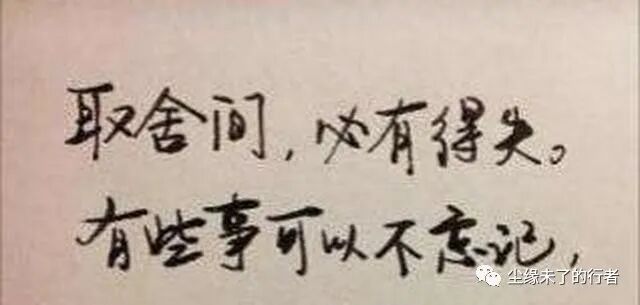 取舍间，必有得失。
有些事可以不忘记，
尘缘未了的行者